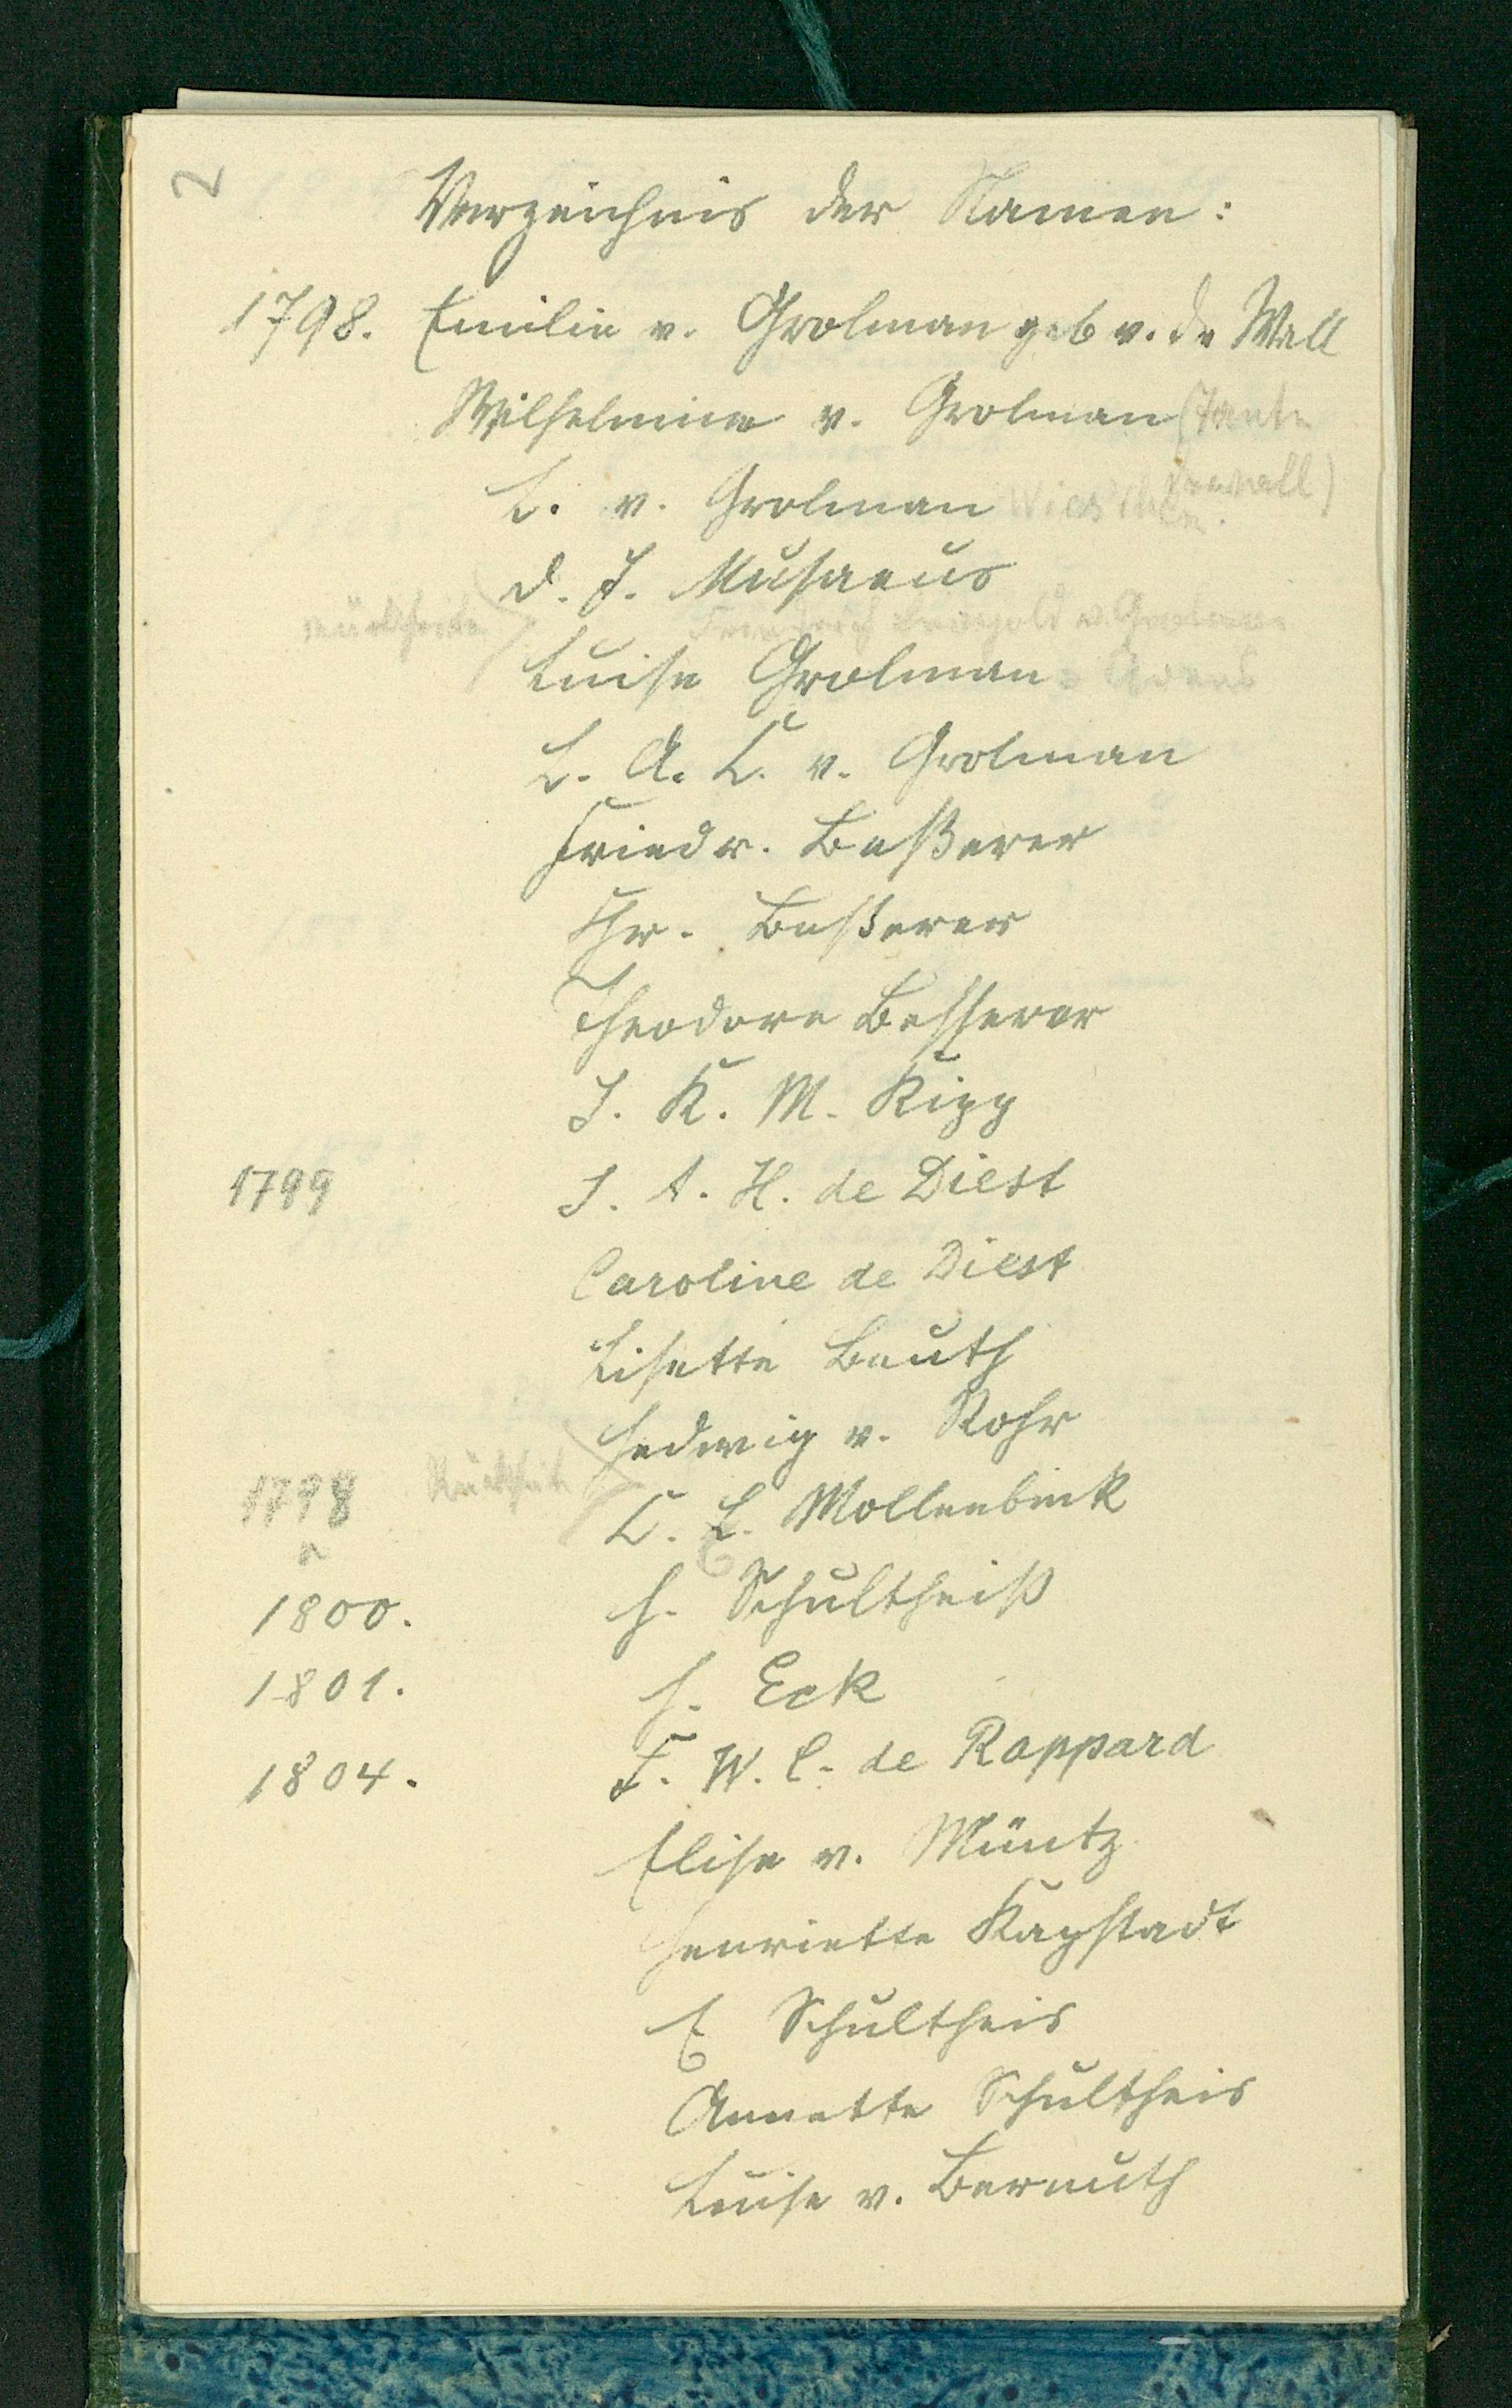 2
Verzeichnis der Namen:
1798. Emilie v. Grolman geb v. de Wall
Wilhelmine v. Grolman (Tante
L. v. Grolman
D. J. Musaeus
Rückseite
Luise Grolman
L. A. C. v. Grolman
Friedr. Beßerer
Chr. Beßerer
Theodore Besserer
J. K. M. Kipp
1799 J. A. H. de Diest
Caroline de Diest
Lisette Beuth
Hedwig v. Rohr
1798 Rückseite
C. E. Mollenbeck
1800. H. Schultheiß
1801. H. Eck
1804. F. W. C. de Rappard
Elise v. Müntz
Henriette Kapstadt
E Schultheis
Annette Schultheis
Luise v. Bernuth